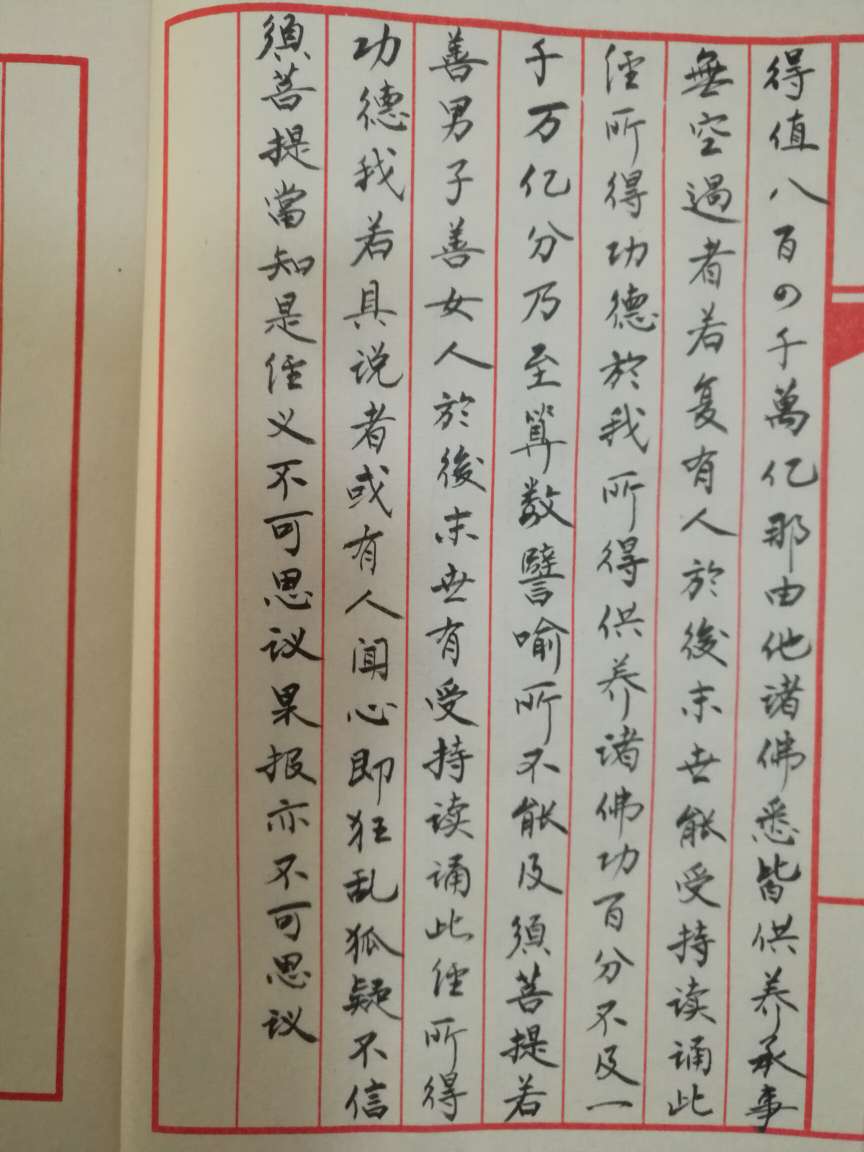 得值八百四千萬亿那由他诸佛悉皆供养承事
無空過者若复有人於後末世能受持读诵此
经所得功德於我所得供养诸佛功百分不及一
千万亿分乃至算数譬喻所不能及须菩提若
善男子善女人於後末世有受持读诵此经所得
功德我若具说者或有人闻心即狂乱狐疑不信
须菩提當知是经义不可思议果报亦不可思议